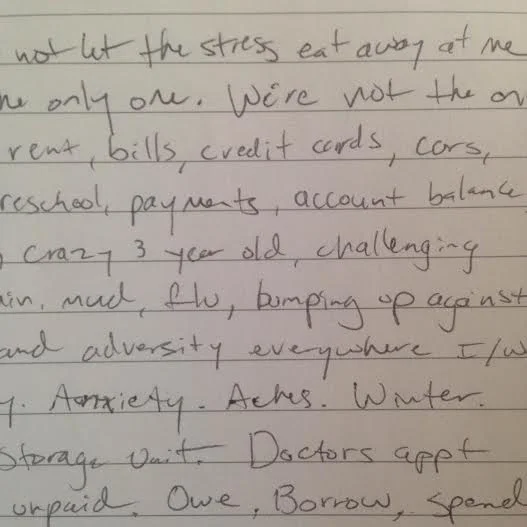 not let the stress eat away at me
he only one. We're not the on
rent, bills, credit cards, cars,
reschool, payments, account balance
, crazy 3 year old, challenging
in, mud, flu, bumping up against
and adversity everywhere I/w
y. Anxiety. Aches. Winter.
Storage Unit. Doctors appt
unpaid. Owe, Borrow, Spend